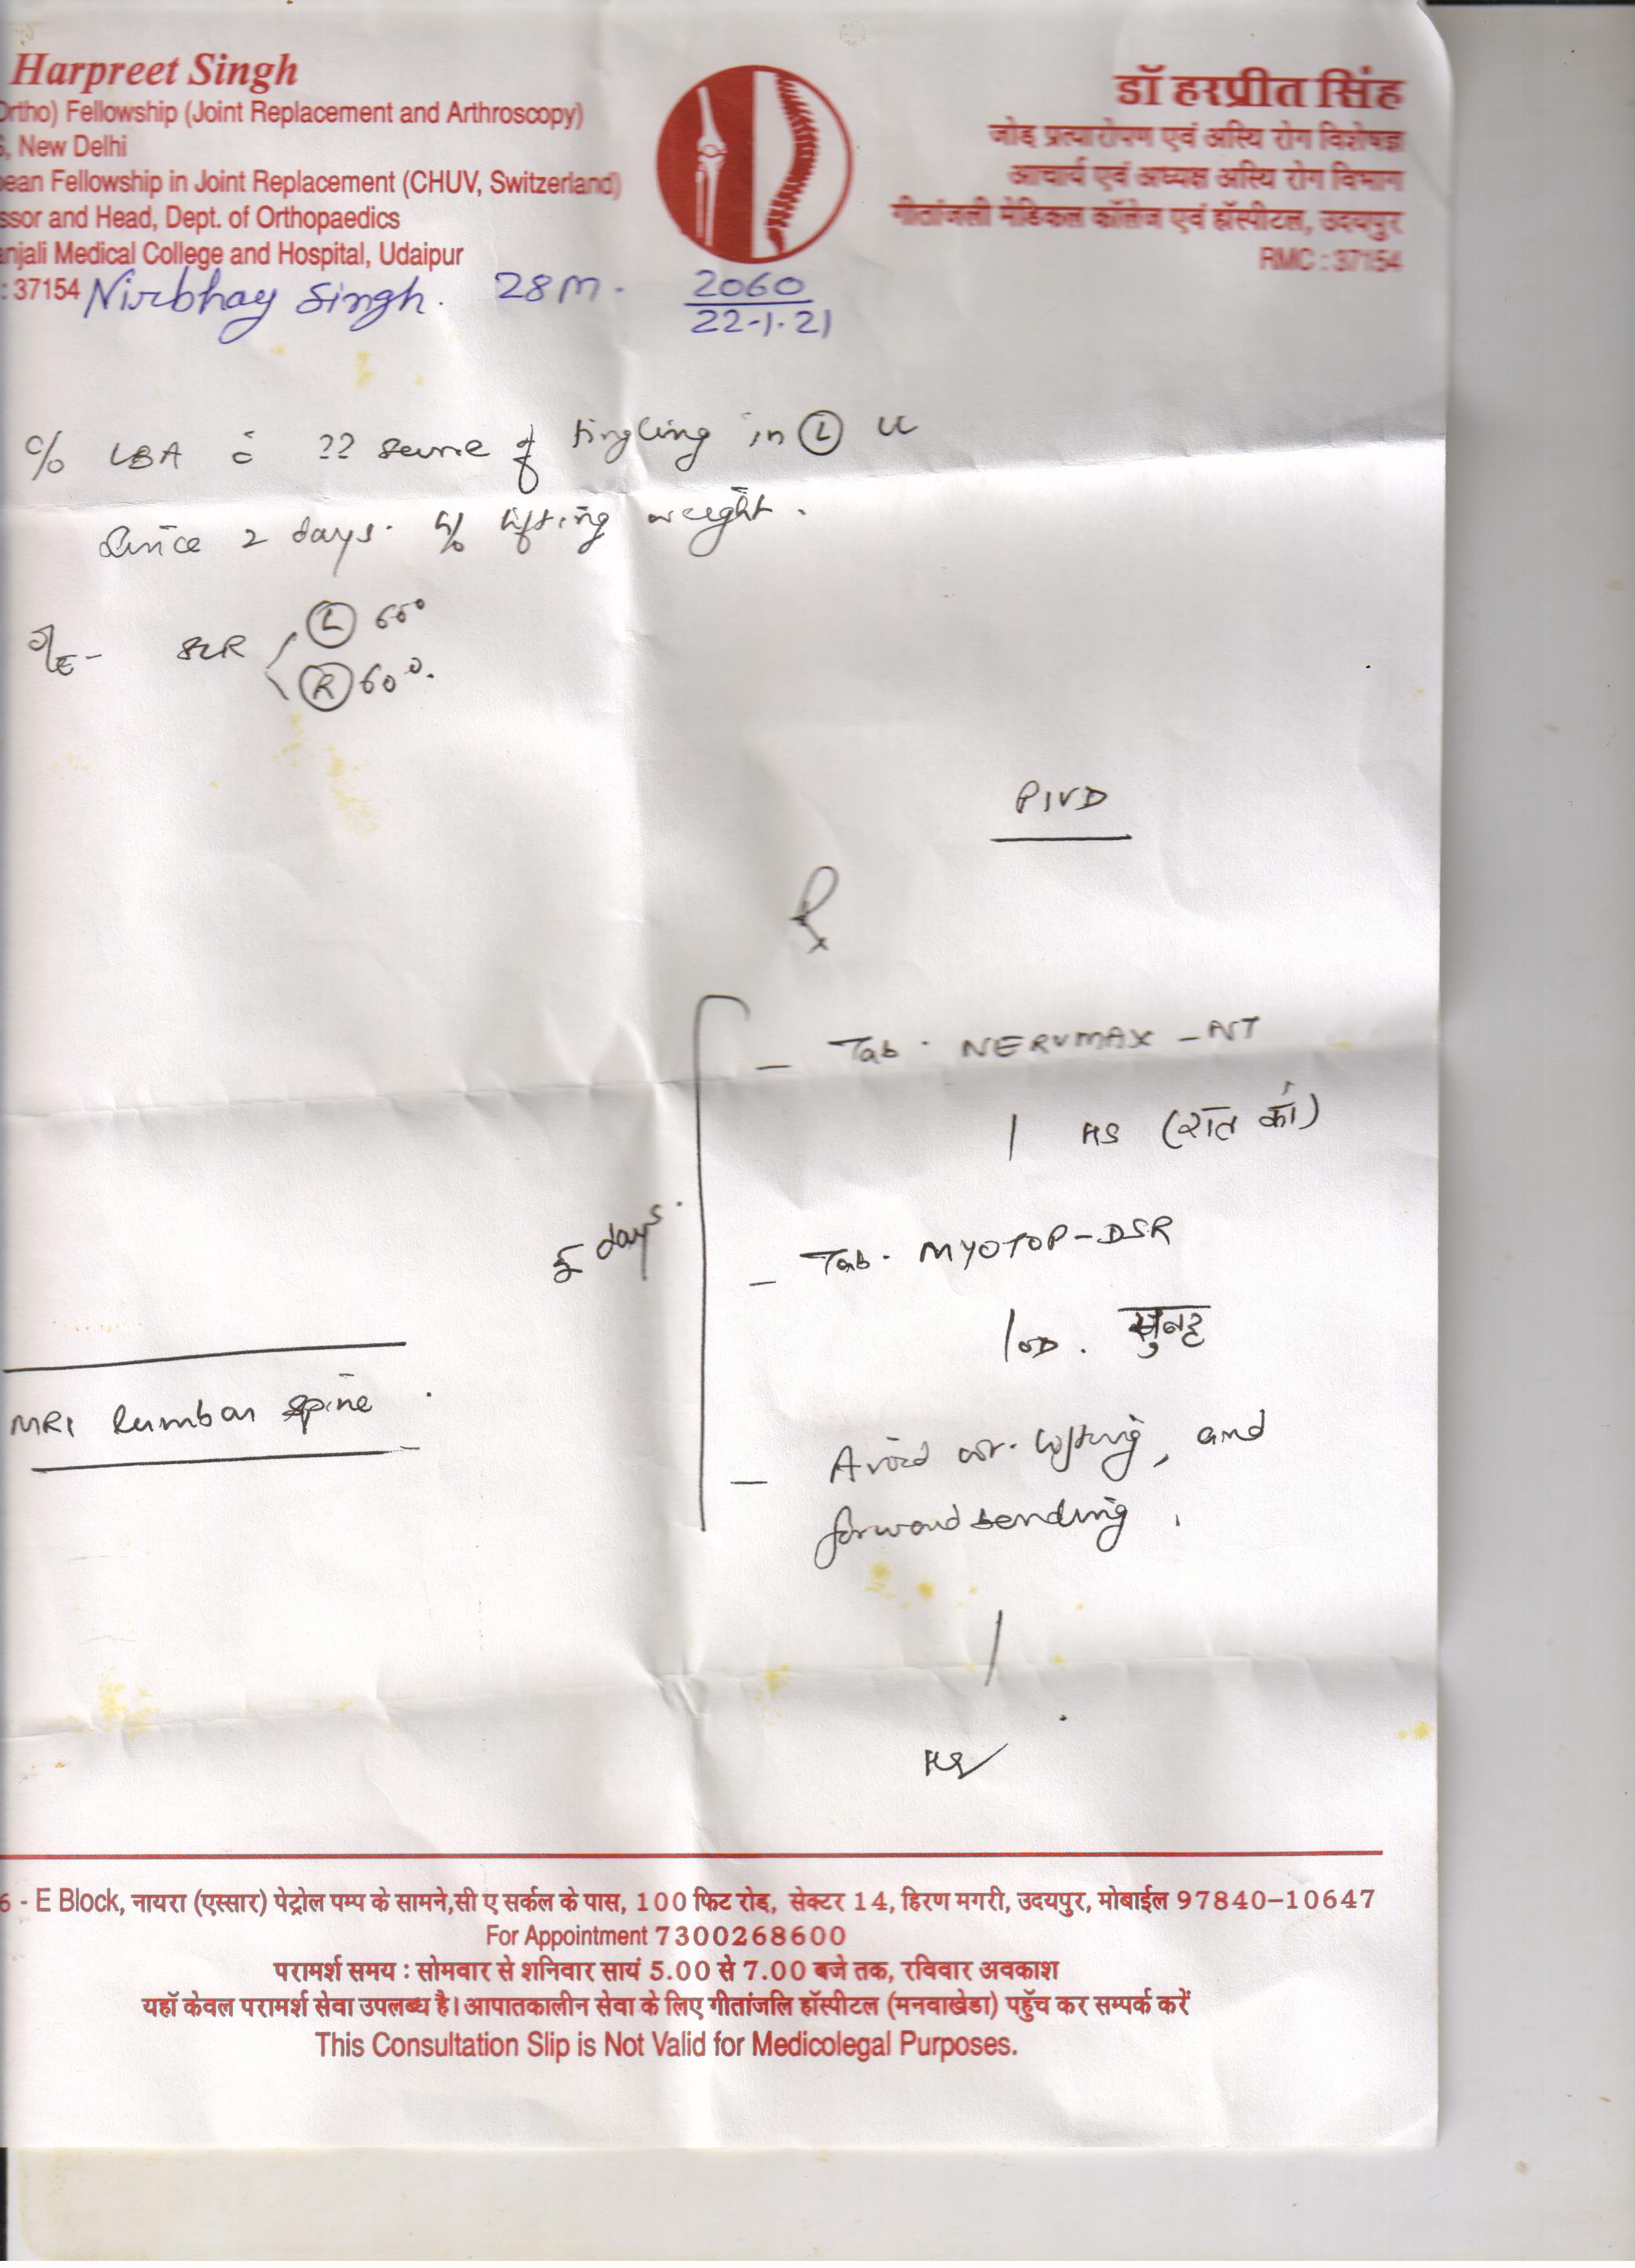 Harpreet Singh
Ortho) Fellowship (Joint Replacement and Arthroscopy)
, New Delhi
ean Fellowship in Joint Replacement (CHUV, Switzerland)
ssor and Head, Dept. of Orthopaedics
anjali Medical College and Hospital, Udaipur
: 37154
डॉ हरप्रीत सिंह
जोड़ प्रत्यारोपण एवं अस्थि रोग विशेषज्ञ
आचार्य एवं अध्यक्ष अस्थि रोग विभाग
गीतांजली मेडिकल कॉलेज एवं हॉस्पीटल, उदयपुर
RMC : 37154
Nirbhay Singh. 28M. 2060
22-1-21
c/o LBA c̄ ?? sense of tingling in Ⓛ LL
Since 2 days. h/o lifting weight.
O/E - SLR Ⓛ 60°
Ⓡ 60°.
PIVD
Rx
- Tab. NERVMAX - NT
1 HS (रात को)
5 days.
- Tab. MYOTOP-DSR
1 OD. सुबह
MRI Lumbar spine.
- Avoid wt. lifting, and
forward bending.
6 - E Block, नायरा (एस्सार) पेट्रोल पम्प के सामने,सी ए सर्कल के पास, 100 फिट रोड, सेक्टर 14, हिरण मगरी, उदयपुर, मोबाईल 97840-10647
For Appointment 7300268600
परामर्श समय : सोमवार से शनिवार सायं 5.00 से 7.00 बजे तक, रविवार अवकाश
यहाँ केवल परामर्श सेवा उपलब्ध है। आपातकालीन सेवा के लिए गीतांजलि हॉस्पीटल (मनवाखेडा) पहुँच कर सम्पर्क करें
This Consultation Slip is Not Valid for Medicolegal Purposes.